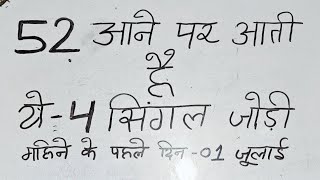 52 आने पर आती
है
ये-4 सिंगल जोड़ी
महिने के पहले दिन-01 जूलाई